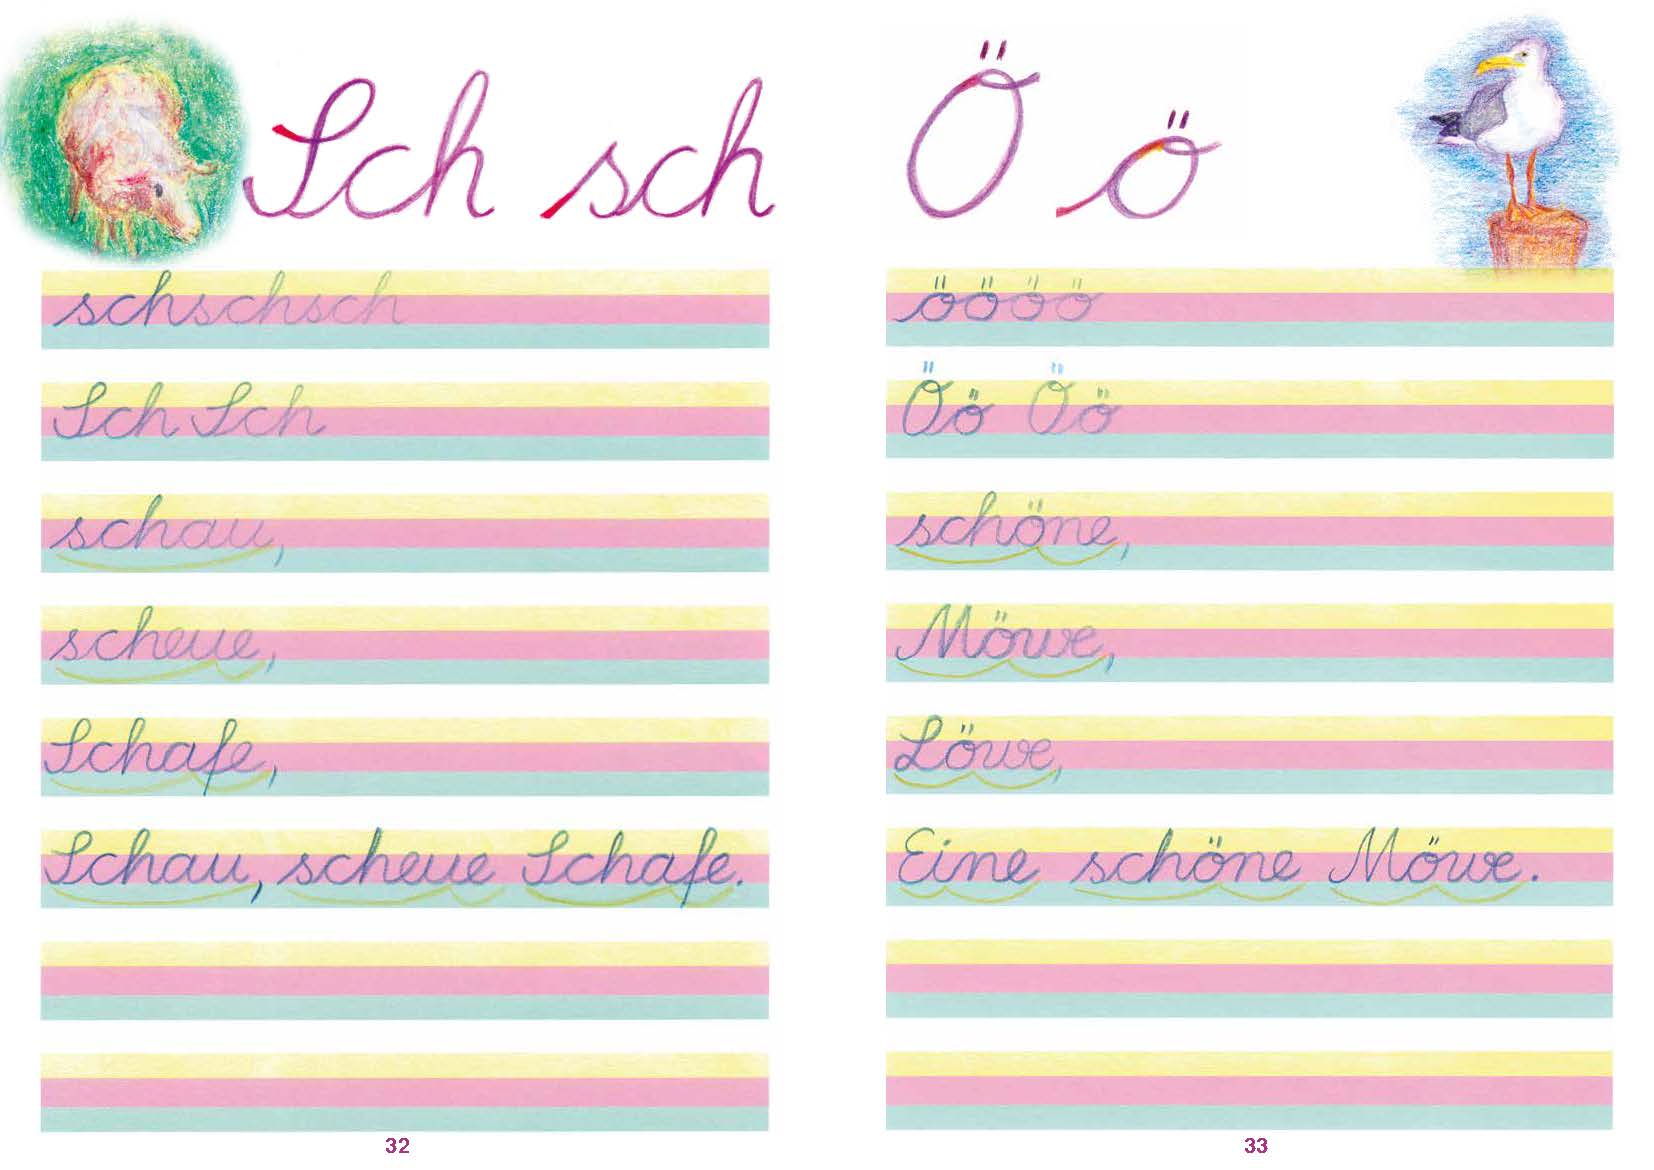 Sch sch
schschsch
Sch Sch
schau,
scheue,
Schafe,
Schau, scheue Schafe.
32
Ö ö
öööö
Öö Öö
schöne,
Möwe,
Löwe,
Eine schöne Möwe.
33